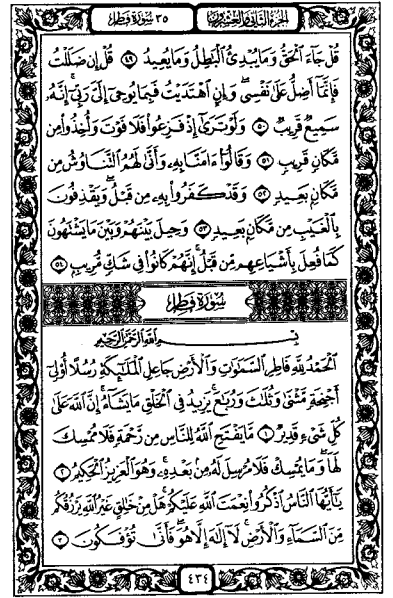 الجزء الثاني والعشرون ٣٥ سورة فطر
قُلْ جَآءَ ٱلْحَقُّ وَمَا يُبْدِئُ ٱلْبَٰطِلُ وَمَا يُعِيدُ ٤٩ قُلْ إِن ضَلَلْتُ
فَإِنَّمَآ أَضِلُّ عَلَىٰ نَفْسِى وَإِنِ ٱهْتَدَيْتُ فَبِمَا يُوحِىٓ إِلَىَّ رَبِّىٓ إِنَّهُۥ
سَمِيعٌ قَرِيبٌ ٥٠ وَلَوْ تَرَىٰٓ إِذْ فَزِعُوا۟ فَلَا فَوْتَ وَأُخِذُوا۟ مِن
مَّكَانٍ قَرِيبٍ ٥١ وَقَالُوٓا۟ ءَامَنَّا بِهِۦ وَأَنَّىٰ لَهُمُ ٱلتَّنَاوُشُ مِن
مَّكَانٍۭ بَعِيدٍ ٥٢ وَقَدْ كَفَرُوا۟ بِهِۦ مِن قَبْلُ وَيَقْذِفُونَ
بِٱلْغَيْبِ مِن مَّكَانٍۭ بَعِيدٍ ٥٣ وَحِيلَ بَيْنَهُمْ وَبَيْنَ مَا يَشْتَهُونَ
كَمَا فُعِلَ بِأَشْيَاعِهِم مِّن قَبْلُ إِنَّهُمْ كَانُوا۟ فِى شَكٍّ مُّرِيبٍۭ ٥٤
سورة فطر
بسم الله الرحمن الرحيم
ٱلْحَمْدُ لِلَّهِ فَاطِرِ ٱلسَّمَٰوَٰتِ وَٱلْأَرْضِ جَاعِلِ ٱلْمَلَٰٓئِكَةِ رُسُلًا أُو۟لِىٓ
أَجْنِحَةٍ مَّثْنَىٰ وَثُلَٰثَ وَرُبَٰعَ يَزِيدُ فِى ٱلْخَلْقِ مَا يَشَآءُ إِنَّ ٱللَّهَ عَلَىٰ
كُلِّ شَىْءٍ قَدِيرٌ ١ مَّا يَفْتَحِ ٱللَّهُ لِلنَّاسِ مِن رَّحْمَةٍ فَلَا مُمْسِكَ
لَهَا وَمَا يُمْسِكْ فَلَا مُرْسِلَ لَهُۥ مِنۢ بَعْدِهِۦ وَهُوَ ٱلْعَزِيزُ ٱلْحَكِيمُ ٢
يَٰٓأَيُّهَا ٱلنَّاسُ ٱذْكُرُوا۟ نِعْمَتَ ٱللَّهِ عَلَيْكُمْ هَلْ مِنْ خَٰلِقٍ غَيْرُ ٱللَّهِ يَرْزُقُكُم
مِّنَ ٱلسَّمَآءِ وَٱلْأَرْضِ لَآ إِلَٰهَ إِلَّا هُوَ فَأَنَّىٰ تُؤْفَكُونَ ٣
٤٣٤